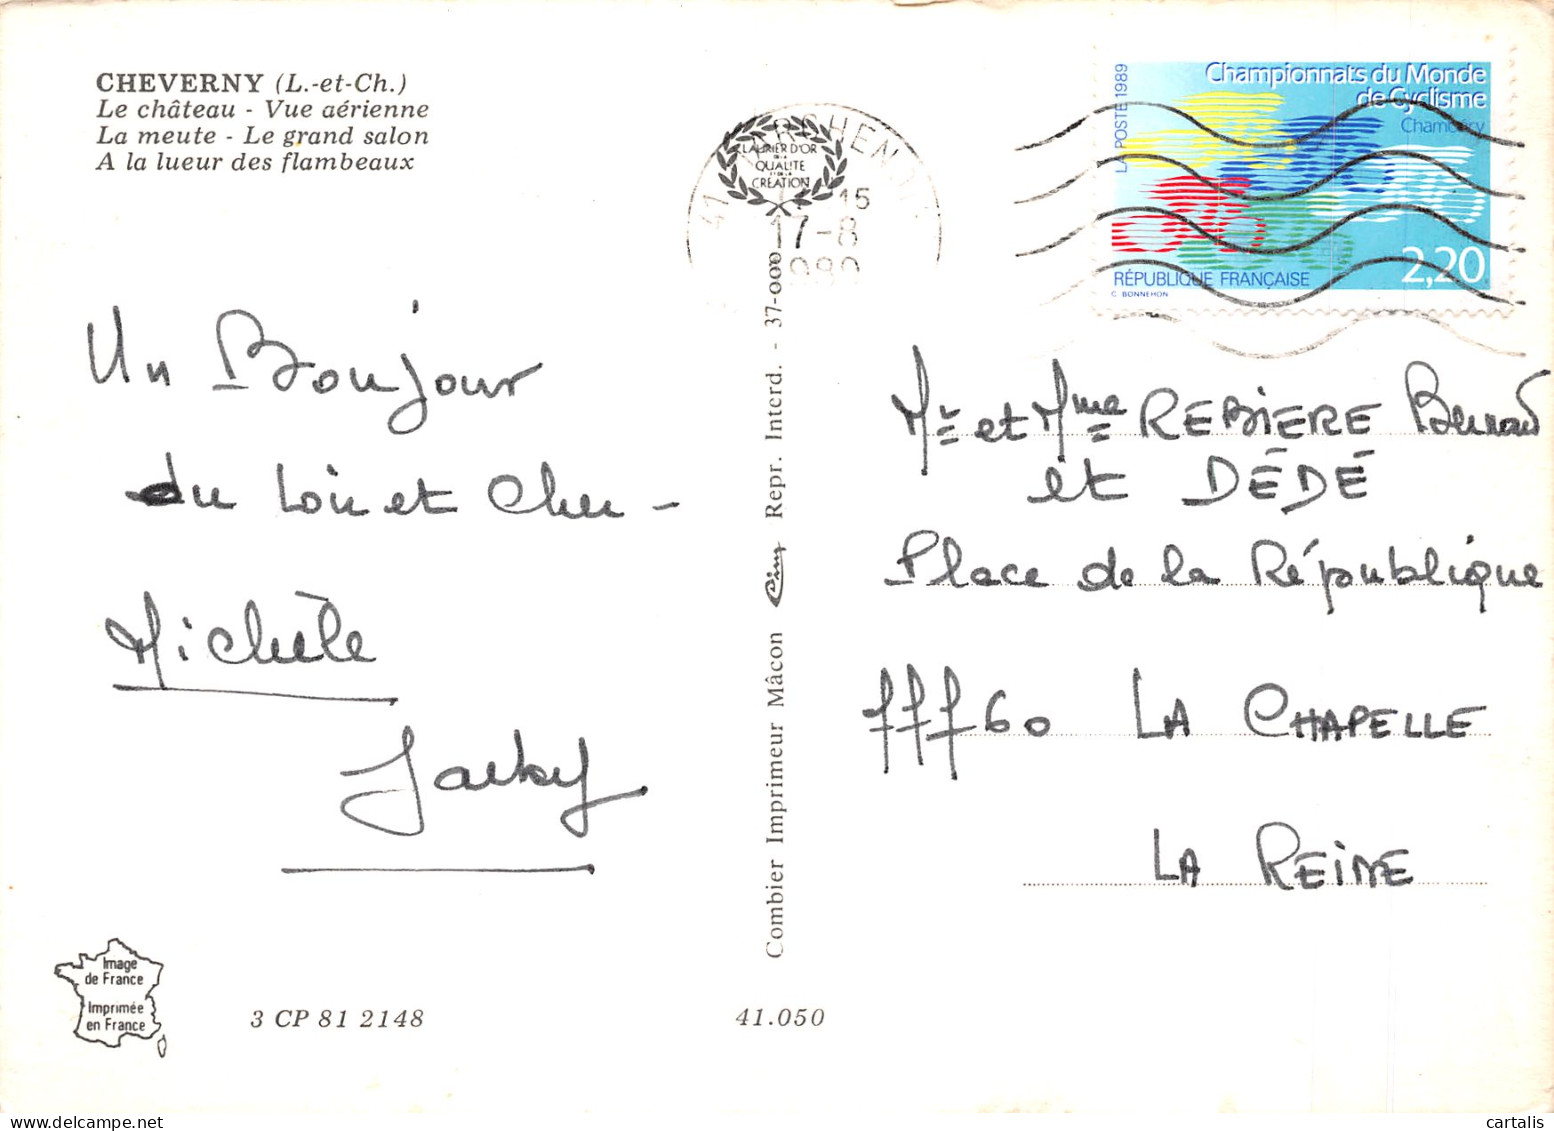 CHEVERNY (L.-et-Ch.)
Le château - Vue aérienne
La meute - Le grand salon
A la lueur des flambeaux
Un Bonjour
du Loir et Cher -
Michèle
Jacky
Image
de France
Imprimée
en France
3 CP 81 2148
41.050
Combier Imprimeur Mâcon Cim Repr. Interd. - 37-000
LAURIER D'OR
DE LA
QUALITE
ET DE LA
CREATION
15
17-8
1989
LA POSTE 1989
Championnats du Monde
de Cyclisme
Chambéry
2,20
RÉPUBLIQUE FRANÇAISE
C. BONNEHON
Mr et Mme REBIERE Bernard
et DÉDÉ
Place de la République
77760 LA CHAPELLE
LA REINE
cartalis